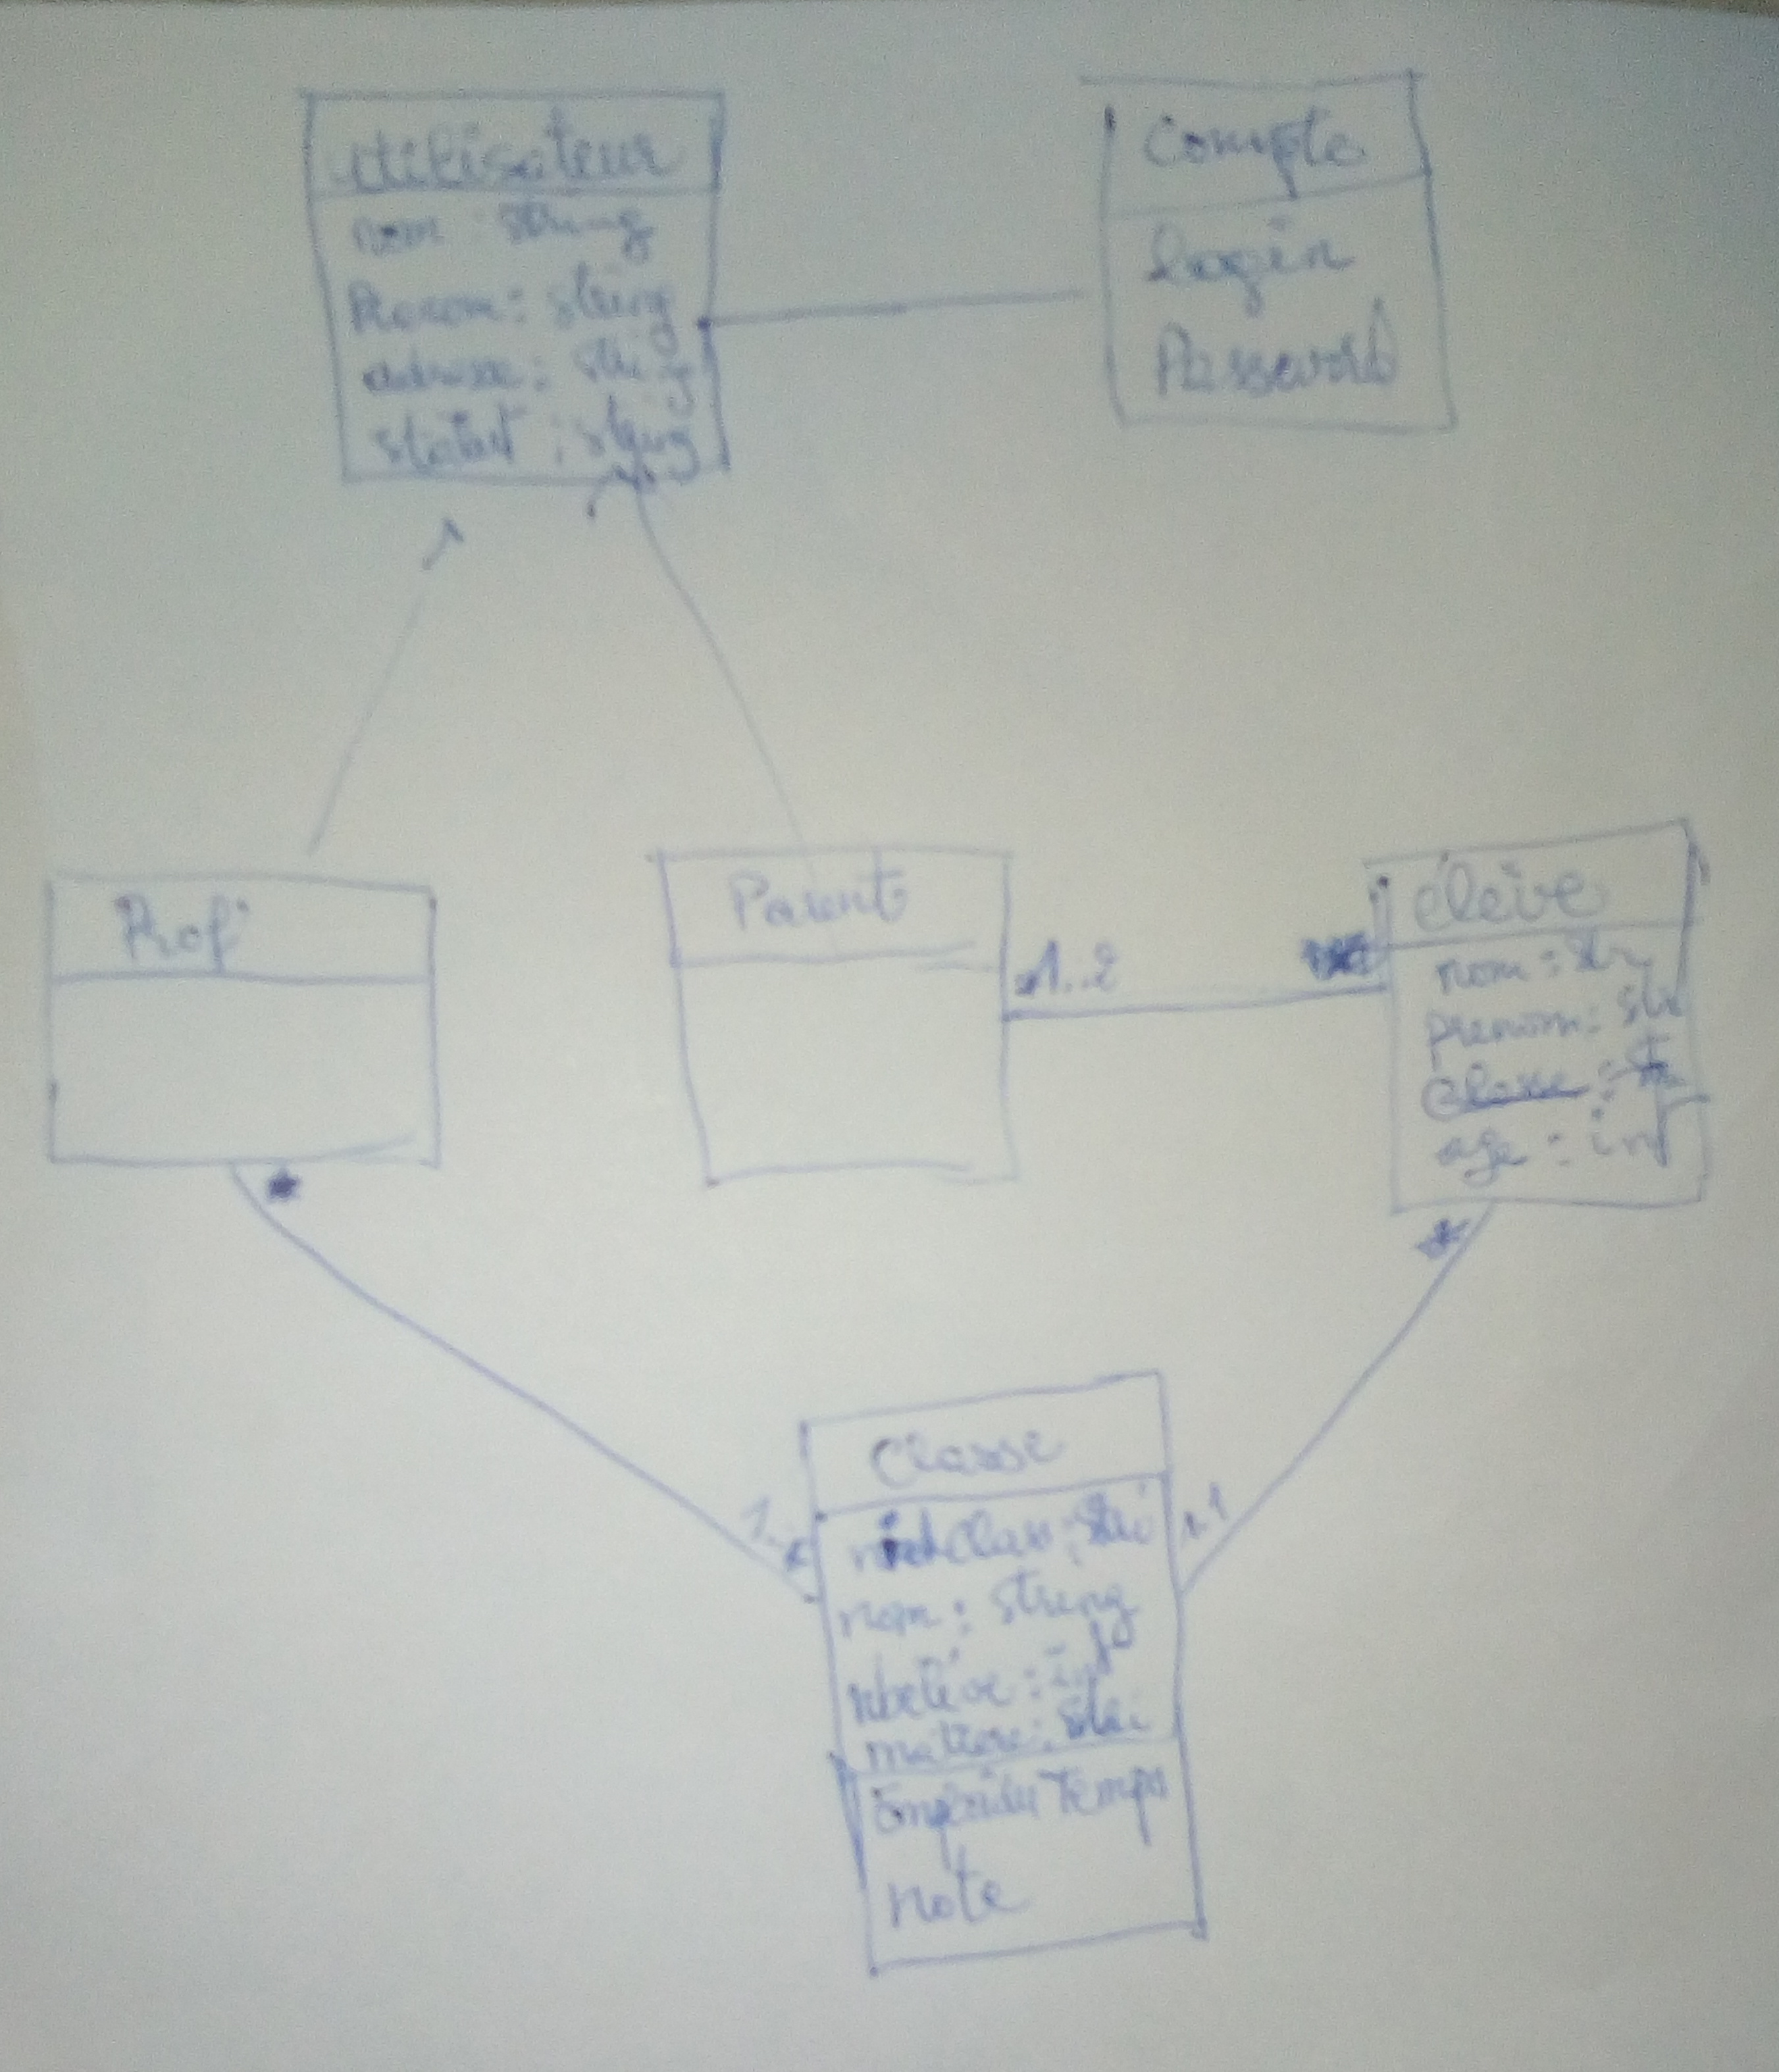 Utilisateur
nom : string
Prenom : string
adresse : string
statut : string
Compte
login
Password
Prof
Parent
1..2
élève
nom : str
prenom : str
classe : str
age : int
*
*
1..*
1.1
Classe
Class : stri
nom : string
nbelève : int
matiere : stri
Emploidu Temps
note